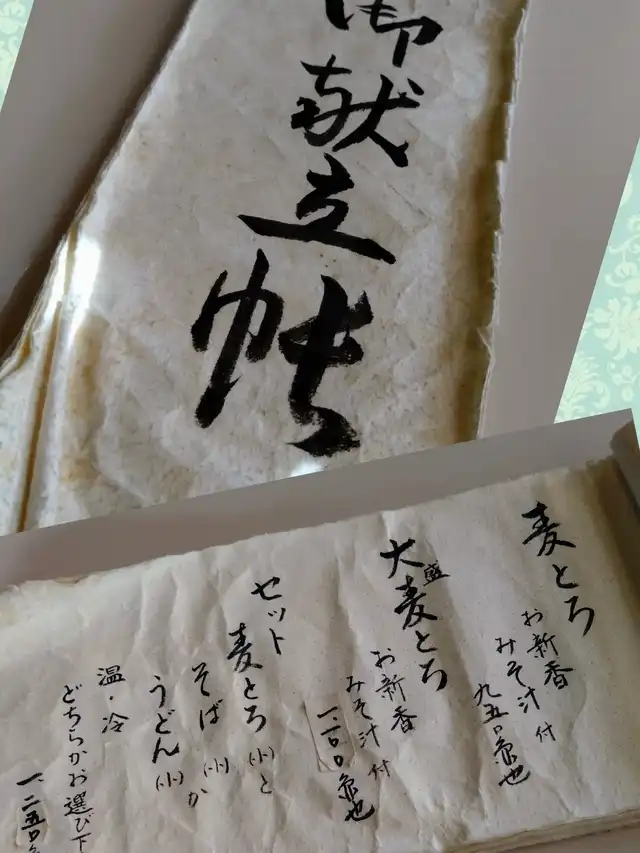 御献立帳
麦とろ
お新香
みそ汁付
九五〇円也
大盛麦とろ
お新香
みそ汁付
一、一〇〇円也
セット
麦とろ(小)と
そば(小)か
うどん(小)
温・冷
どちらかお選び下
一、二五〇